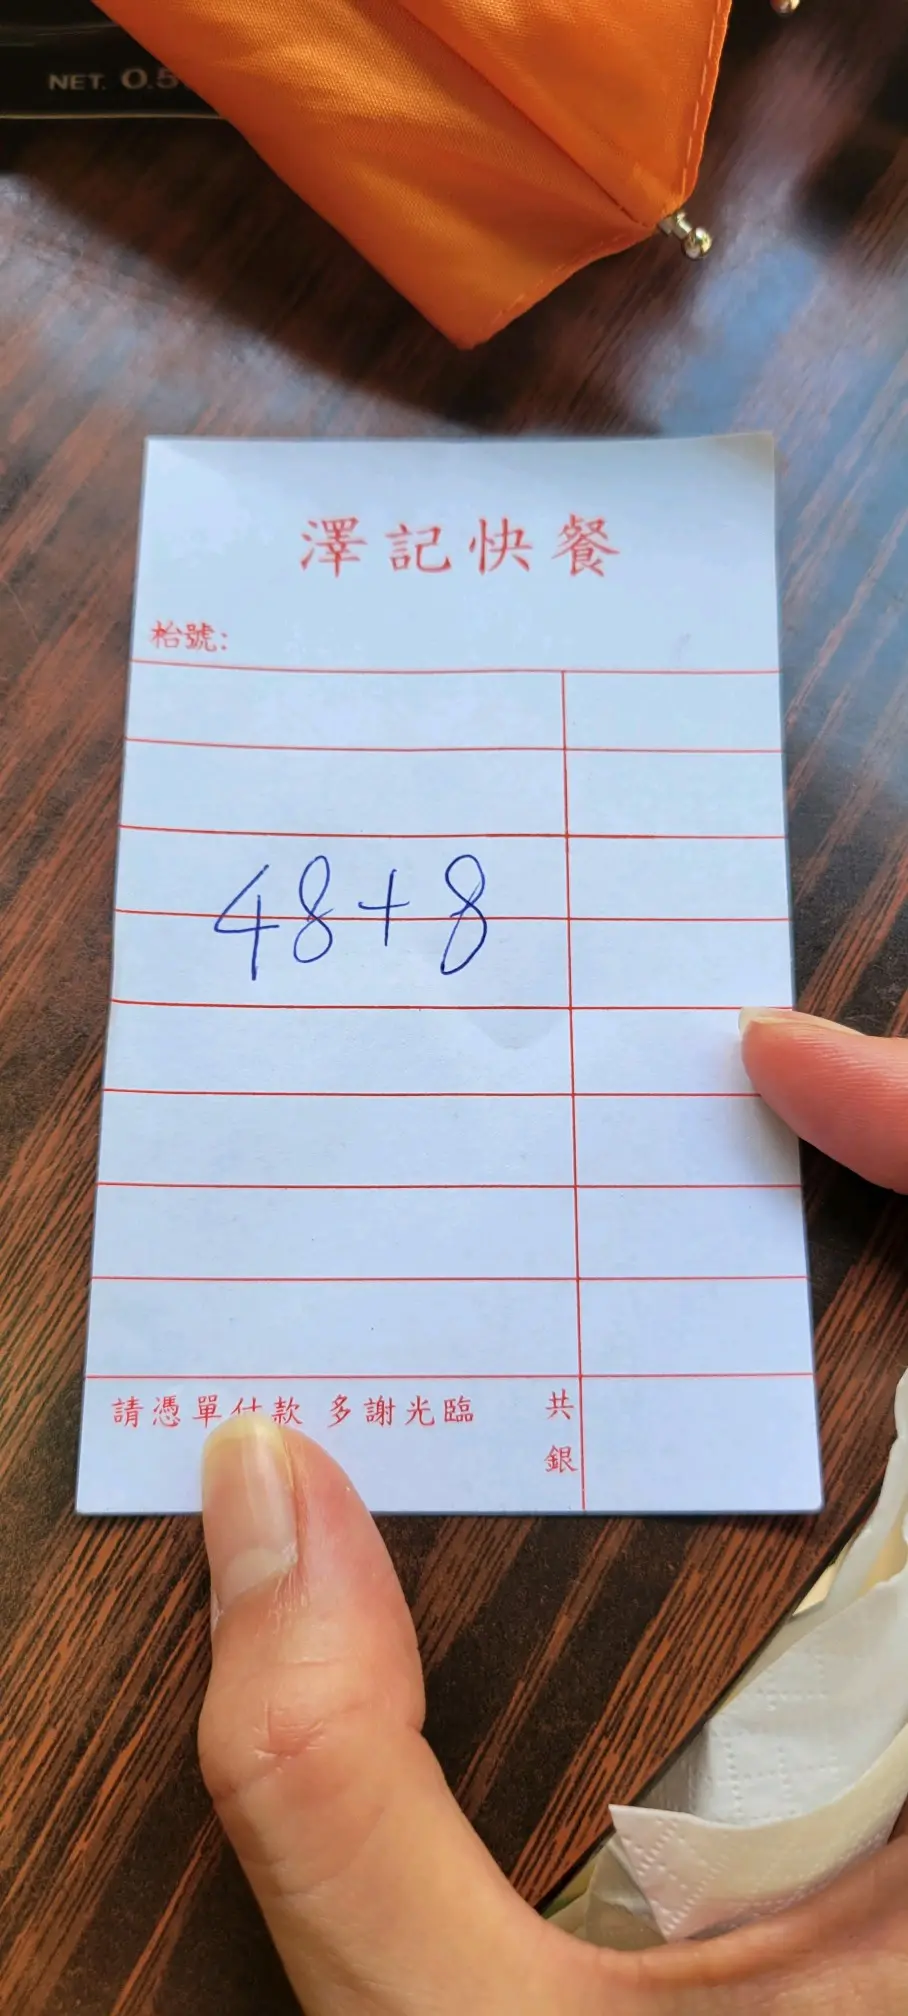 NET. 0.5
澤記快餐
枱號:
48+8
請憑單付款 多謝光臨 共
銀